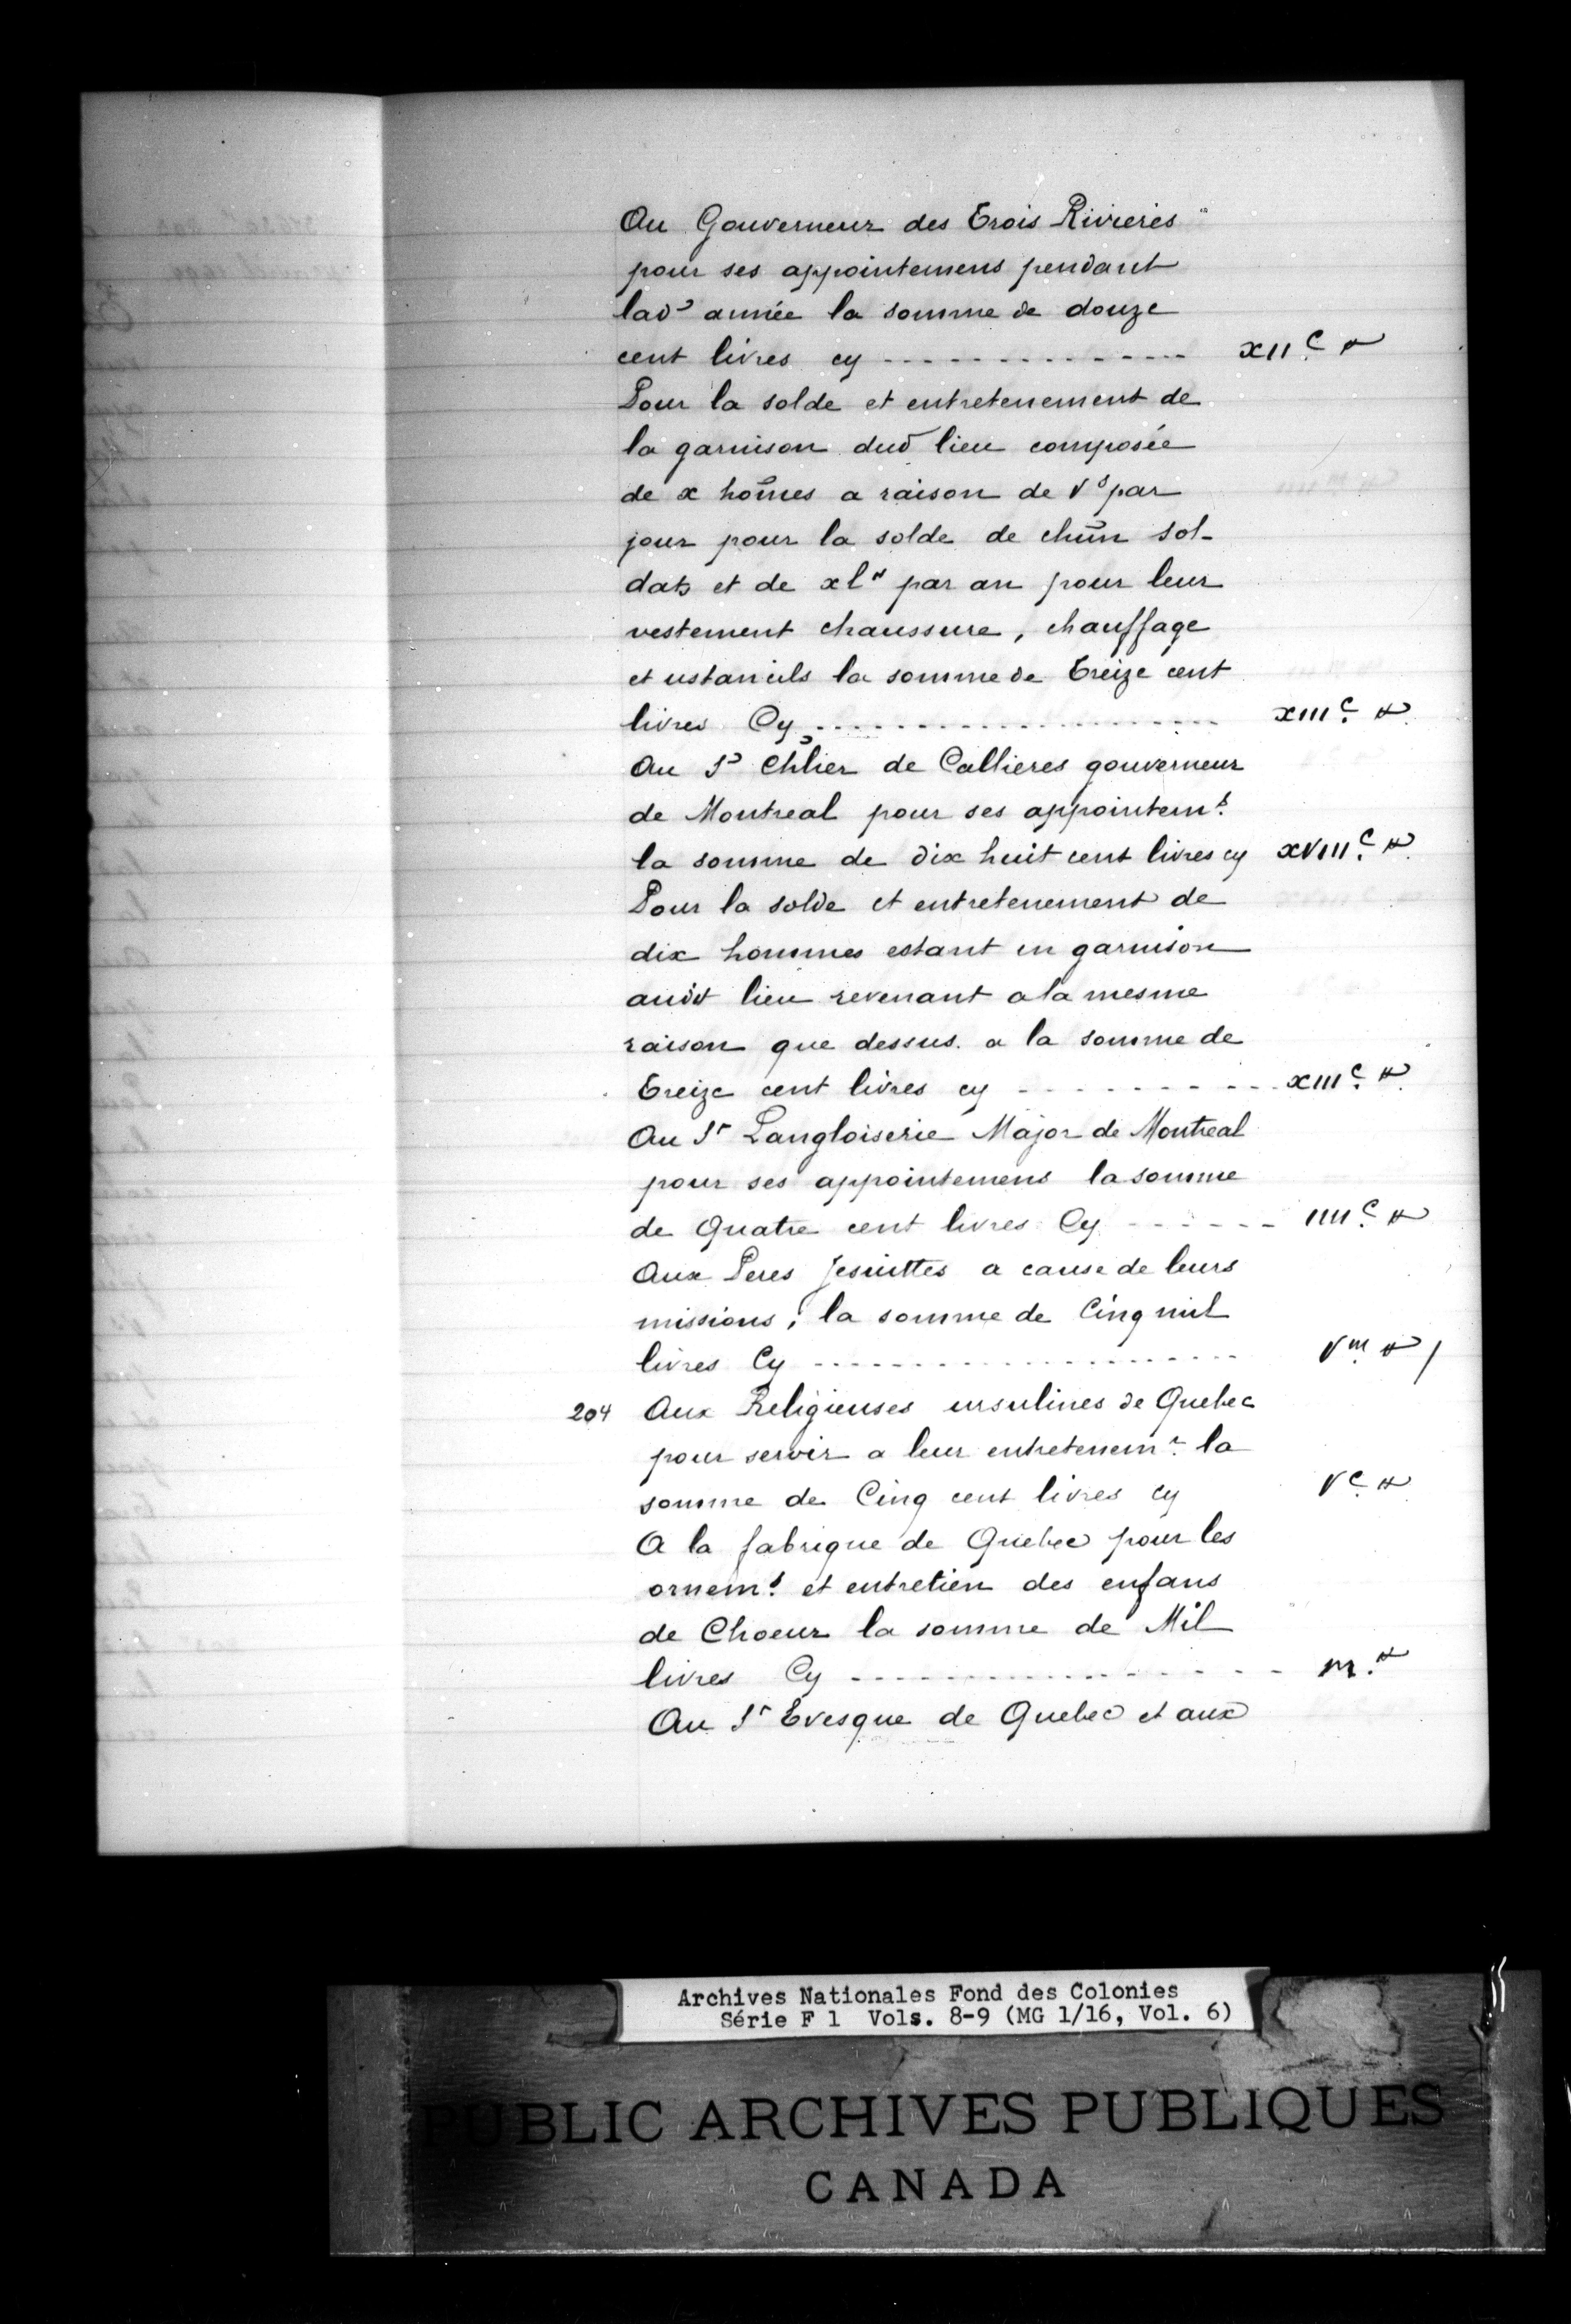 Au Gouverneur des Trois Rivieres
pour ses appointemens pendant
lad année la somme de douze
cent livres cy -------------- XIIc ₶
Pour la solde et entretenement de
la garnison dud lieu composée
de x hom̄es a raison de Vs par
jour pour la solde de chūn sol-
dats et de xl₶ par an pour leur
vestement chaussure, chauffage
et ustancils la somme de Treize cent
livres Cy ------------------- XIIIc ₶
Au Sr Chlier de Callieres gouverneur
de Montreal pour ses appointemts
la somme de dix huit cent livres cy XVIIIc ₶
Pour la solde et entretenement de
dix hommes estant en garnison
audt lieu revenant a la mesme
raison que dessus a la somme de
Treize cent livres cy ---------- XIIIc ₶
Au Sr Langloiserie Major de Montreal
pour ses appointemens la somme
de Quatre cent livres Cy ------ IIIIc ₶
Aux Peres Jesuittes a cause de leurs
missions, la somme de Cinq mil
livres Cy -------------------- Vm ₶ /
204 Aux Religieuses ursulines de Quebec
pour servir a leur entretenemt la
somme de Cinq cent livres cy Vc ₶
A la fabrique de Quebec pour les
ornemts et entretien des enfans
de Choeur la somme de Mil
livres Cy ------------------- M ₶
Au Sr Evesque de Quebec et aux
Archives Nationales Fond des Colonies
Série F 1 Vols. 8-9 (MG 1/16, Vol. 6)
PUBLIC ARCHIVES PUBLIQUES
CANADA